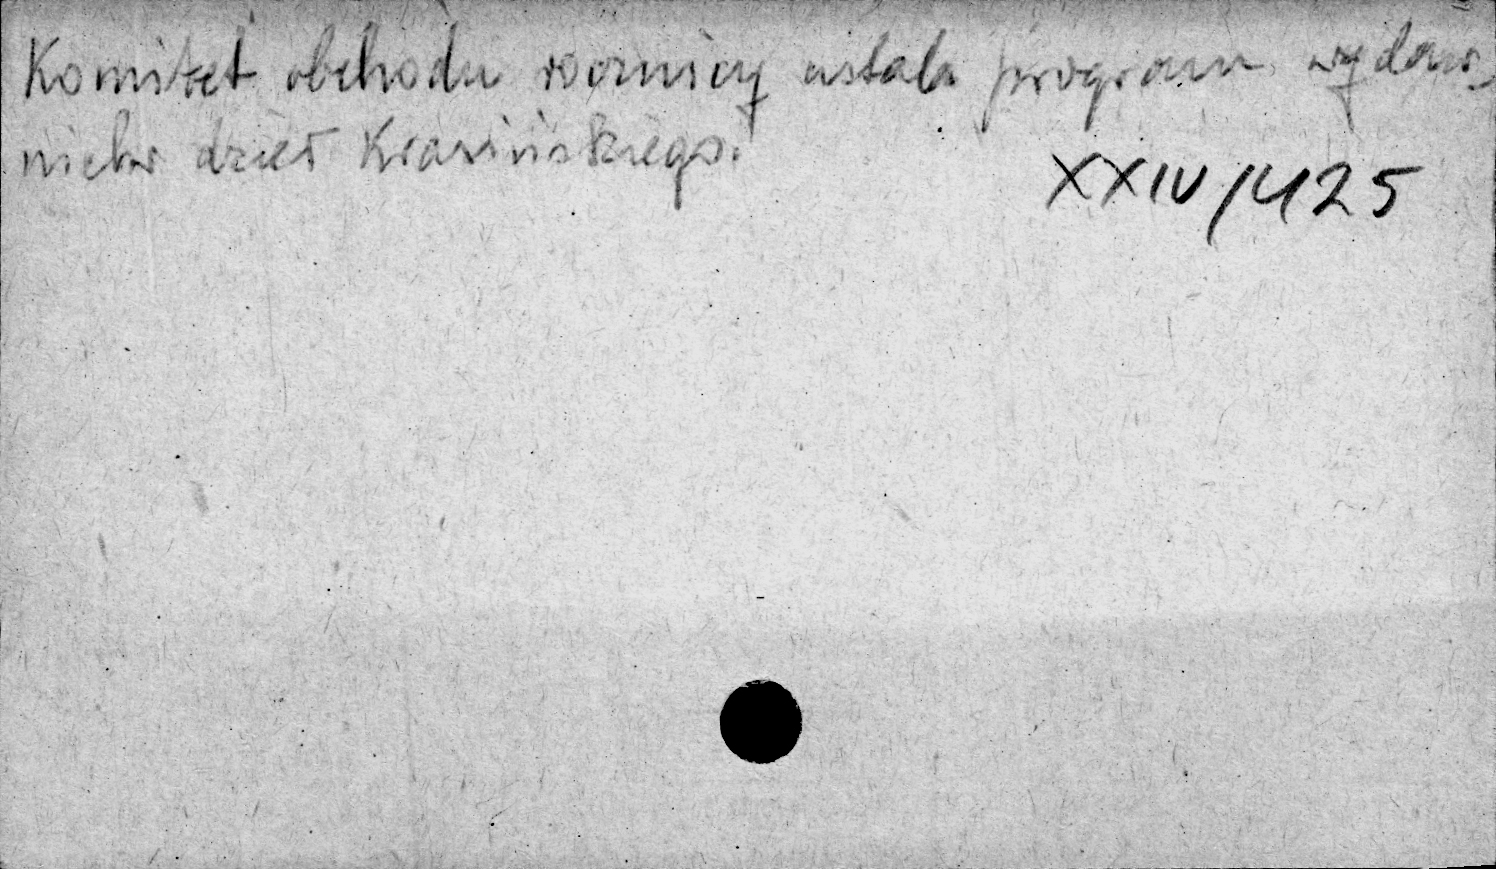 Komitet obchodu rocznicy ustala program wydaw-
nictw dzieł Krasińskiego.
XXIV/425